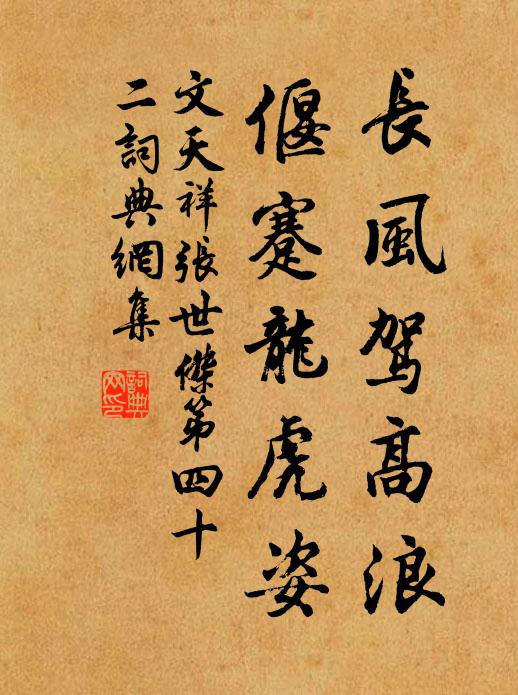 長風駕高浪
偃蹇龍虎姿
文天祥張世傑第四十
二詞典網集
詞典
网印